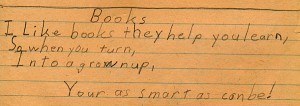 Books
I Like books they help you learn,
So when you turn,
Into a grownup,
Your as smart as canbe!